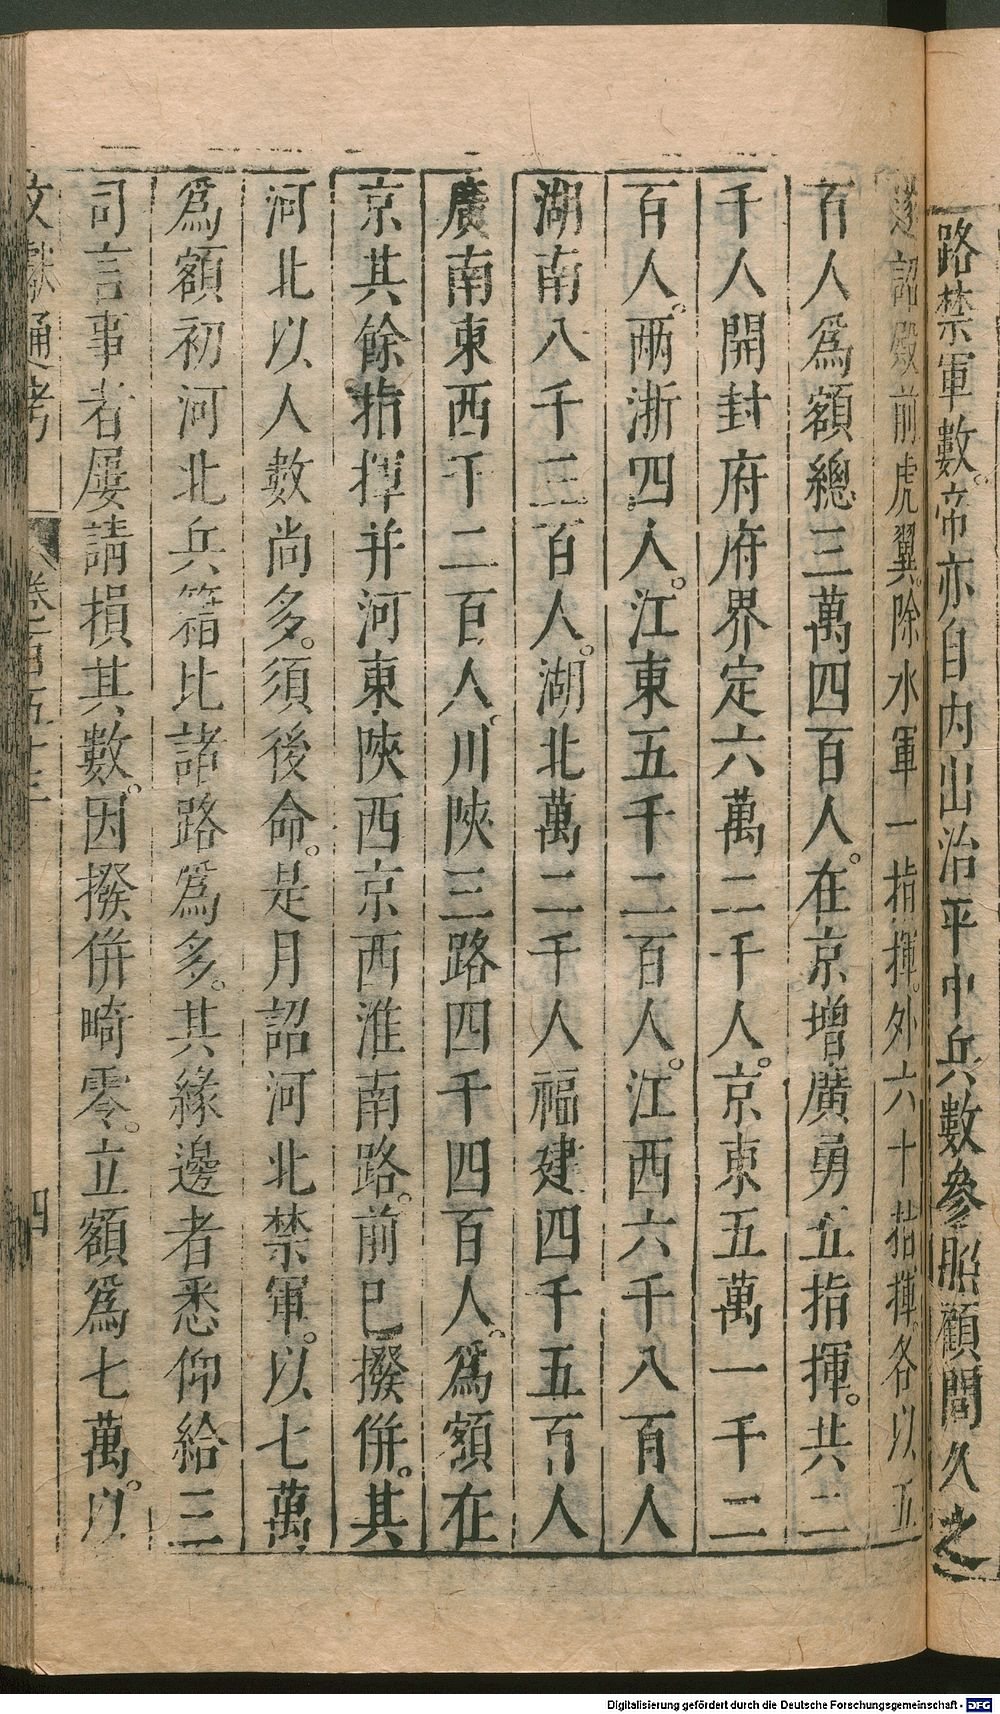 路禁軍數帝亦自內出治平中兵數參照顧問久之
遂詔殿前虎翼除水軍一指揮外六十指揮各以五
百人爲額總三萬四百人在京增廣勇五指揮共二
千人開封府府界定六萬二千人京東五萬一千二
百人兩浙四人江東五千二百人江西六千八百人
湖南八千三百人湖北萬二千人福建四千五百人
廣南東西千二百人川陝三路四千四百人爲額在
京其餘指揮并河東陝西京西淮南路前已撥併其
河北以人數尚多須後命是月詔河北禁軍以七萬
爲額初河北兵籍比諸路爲多其緣邊者悉仰給三
司言事者屢請損其數因撥併畸零立額爲七萬以
文獻通考 卷一百五十三 四
Digitalisierung gefördert durch die Deutsche Forschungsgemeinschaft - DFG